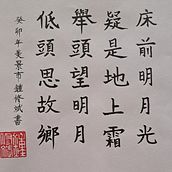 床前明月光
疑是地上霜
舉頭望明月
低頭思故鄉
癸卯年夏景市鍾修斌書